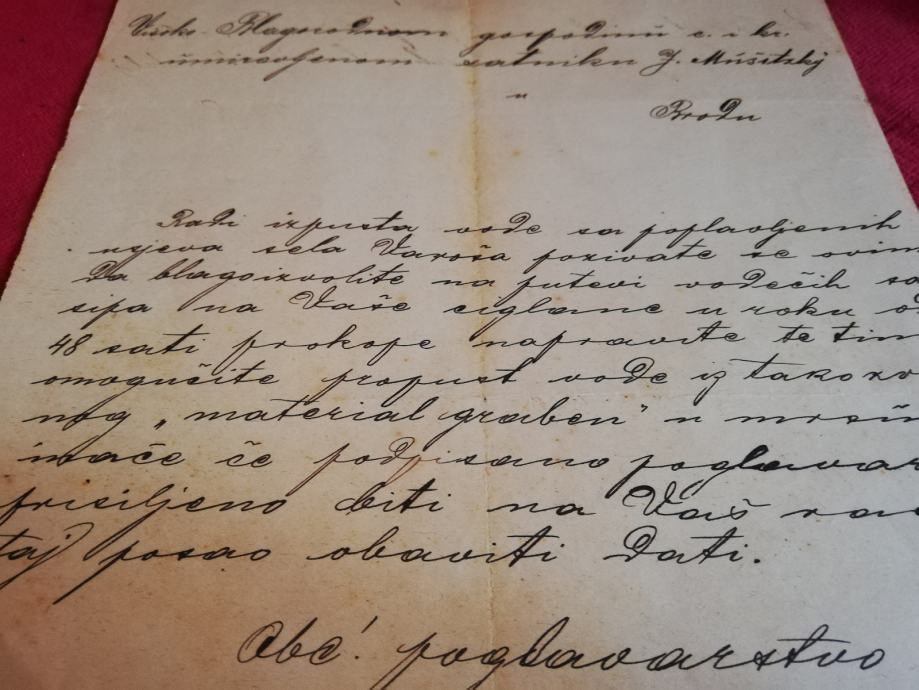 Visoko Blagorodnom gospodinu c. i kr.
umirovljenom satniku J. Mušitzky
u
Brodu
Radi izpusta vode sa poplavljenih
usjeva sela Varoša pozivate se ovim
da blagoizvolite na putevi vodećih sa
sipa na Vaše ciglane u roku o
48 sati prokope napravite te tim
omogučite propust vode iz takozv
nog „material graben" u
inače če podpisano poglavar
prisiljeno biti na Vaš
taj posao obaviti dati.
Obć! poglavarstvo